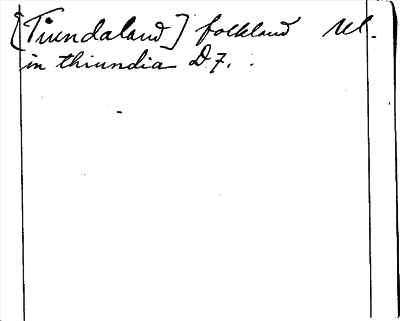 [Tiundaland] folkland Ul.
in thiundia D.7.